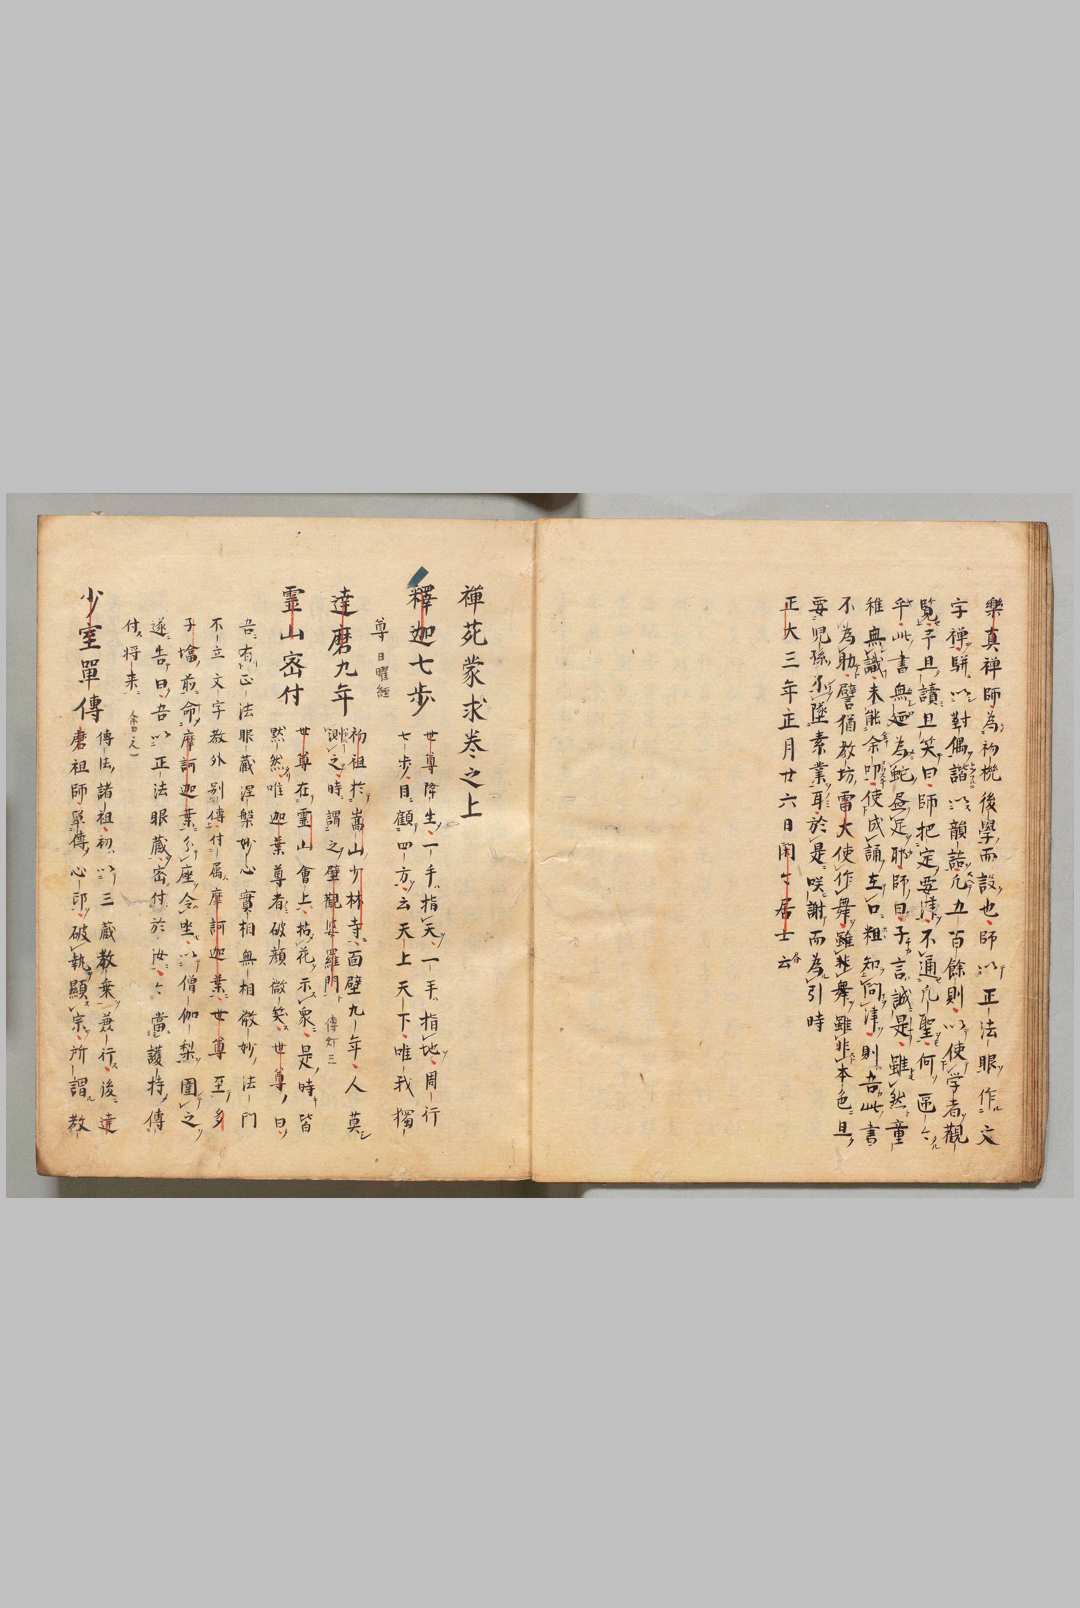 樂真禅師為初機後學而設也師以正法眼作文
字禅駢以對偶諧以韻語凡五百餘則以使学者觀
覧予且讀且笑曰師把定要津不通凡聖何區々
乎此書無廼為蛇畫足耶師曰子言誠是雖然童
稚無識未能余叩使成誦在口粗知向津則吾此書
不為助譬猶教坊雷大使作舞雖非舞雖非本色且
要児孫不墜素業耳於是咲謝而為引時
正大三年正月廿六日閑々居士云
禅苑蒙求巻之上
釋迦七歩
世尊降生一手指天一手指地周行
七歩目顧四方云天上天下唯我獨
尊 日曜経
達磨九年
初祖於嵩山少林寺面壁九年人莫
測之時謂之壁觀婆羅門 傳灯三
霊山密付
世尊在霊山會上拈花示衆是時皆
黙然唯迦葉尊者破顔微笑世尊曰
吾有正法眼蔵涅槃妙心實相無相微妙法門
不立文字教外別傳付属摩訶迦葉世尊至多
子塔前命摩訶迦葉分座令坐以僧伽梨圍之
遂告曰吾以正法眼蔵密付於汝々當護持傳
付将来
少室單傳
傳法諸祖初以三蔵教乗兼行後達
磨祖師單傳心印破執顯宗所謂教